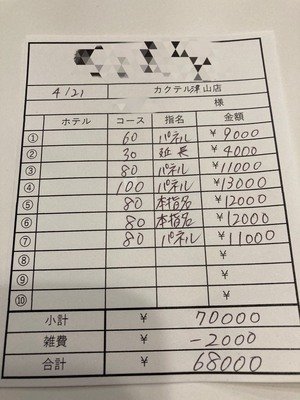 4/21 カクテル津山店
様
ホテル コース 指名 金額
① 60 パネル ¥9000
② 30 延長 ¥4000
③ 80 パネル ¥11000
④ 100 パネル ¥13000
⑤ 80 本指名 ¥12000
⑥ 80 本指名 ¥12000
⑦ 80 パネル ¥11000
⑧ ¥
⑨ ¥
⑩ ¥
小計 ¥ 70000
雑費 ¥ -2000
合計 ¥ 68000